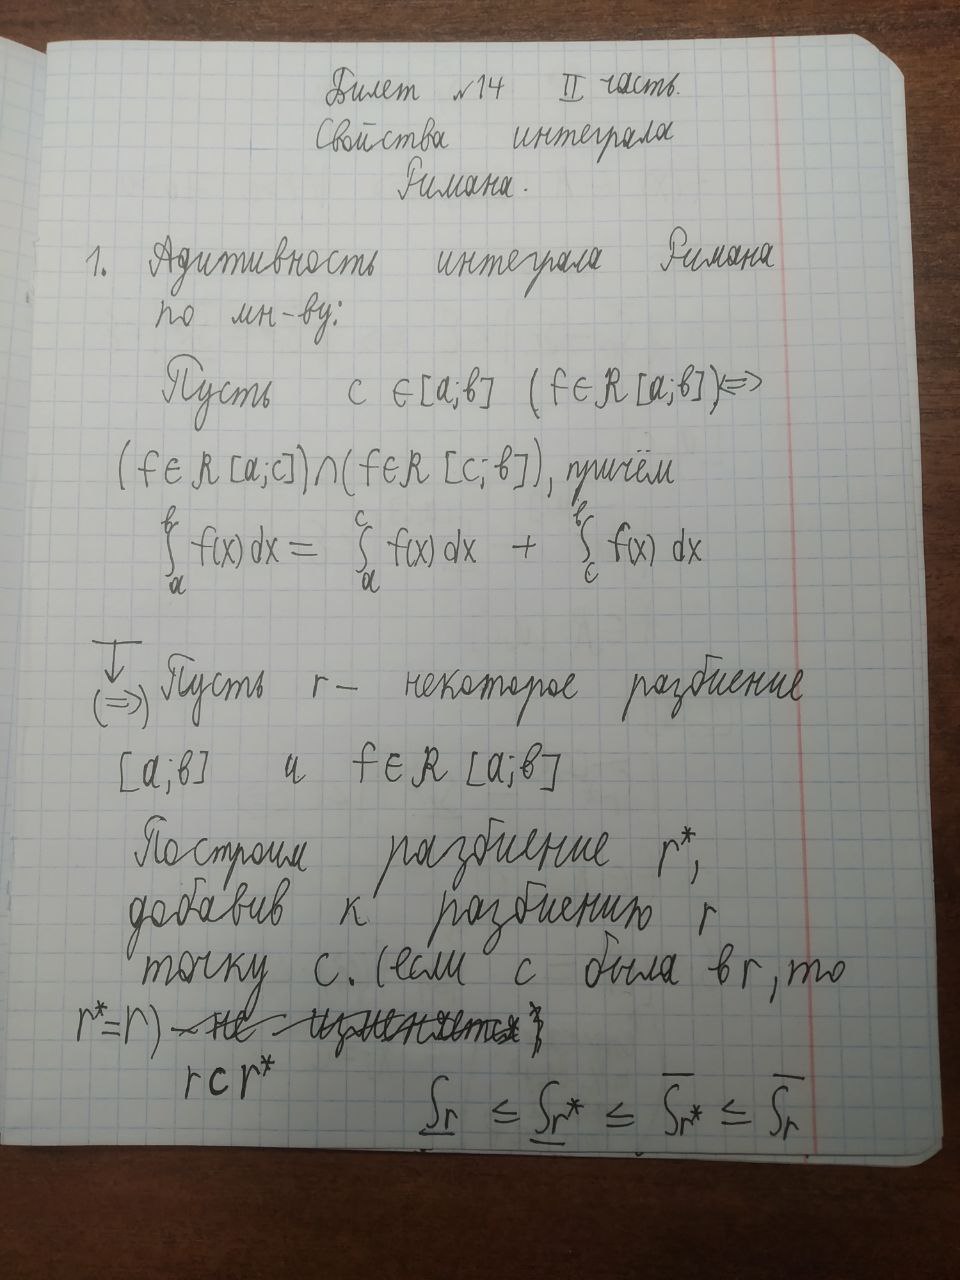 Билет №14 II часть.
Свойства интеграла
Римана.
1. Адитивность интеграла Римана
по мн-ву:
Пусть c ∈ [a;b] (f ∈ R [a;b]) <=>
(f ∈ R [a;c]) ∩ (f ∈ R [c;b]), причём
∫ₐᵇ f(x) dx = ∫ₐᶜ f(x) dx + ∫꜀ᵇ f(x) dx
(=>) Пусть r – некоторое разбиение
[a;b] и f ∈ R [a;b]
Построим разбиение r*,
добавив к разбиению r
точку c. (если c была в r, то
r* = r) не изменяется
r ⊂ r*
S̲r ≤ S̲r* ≤ S̅r* ≤ S̅r